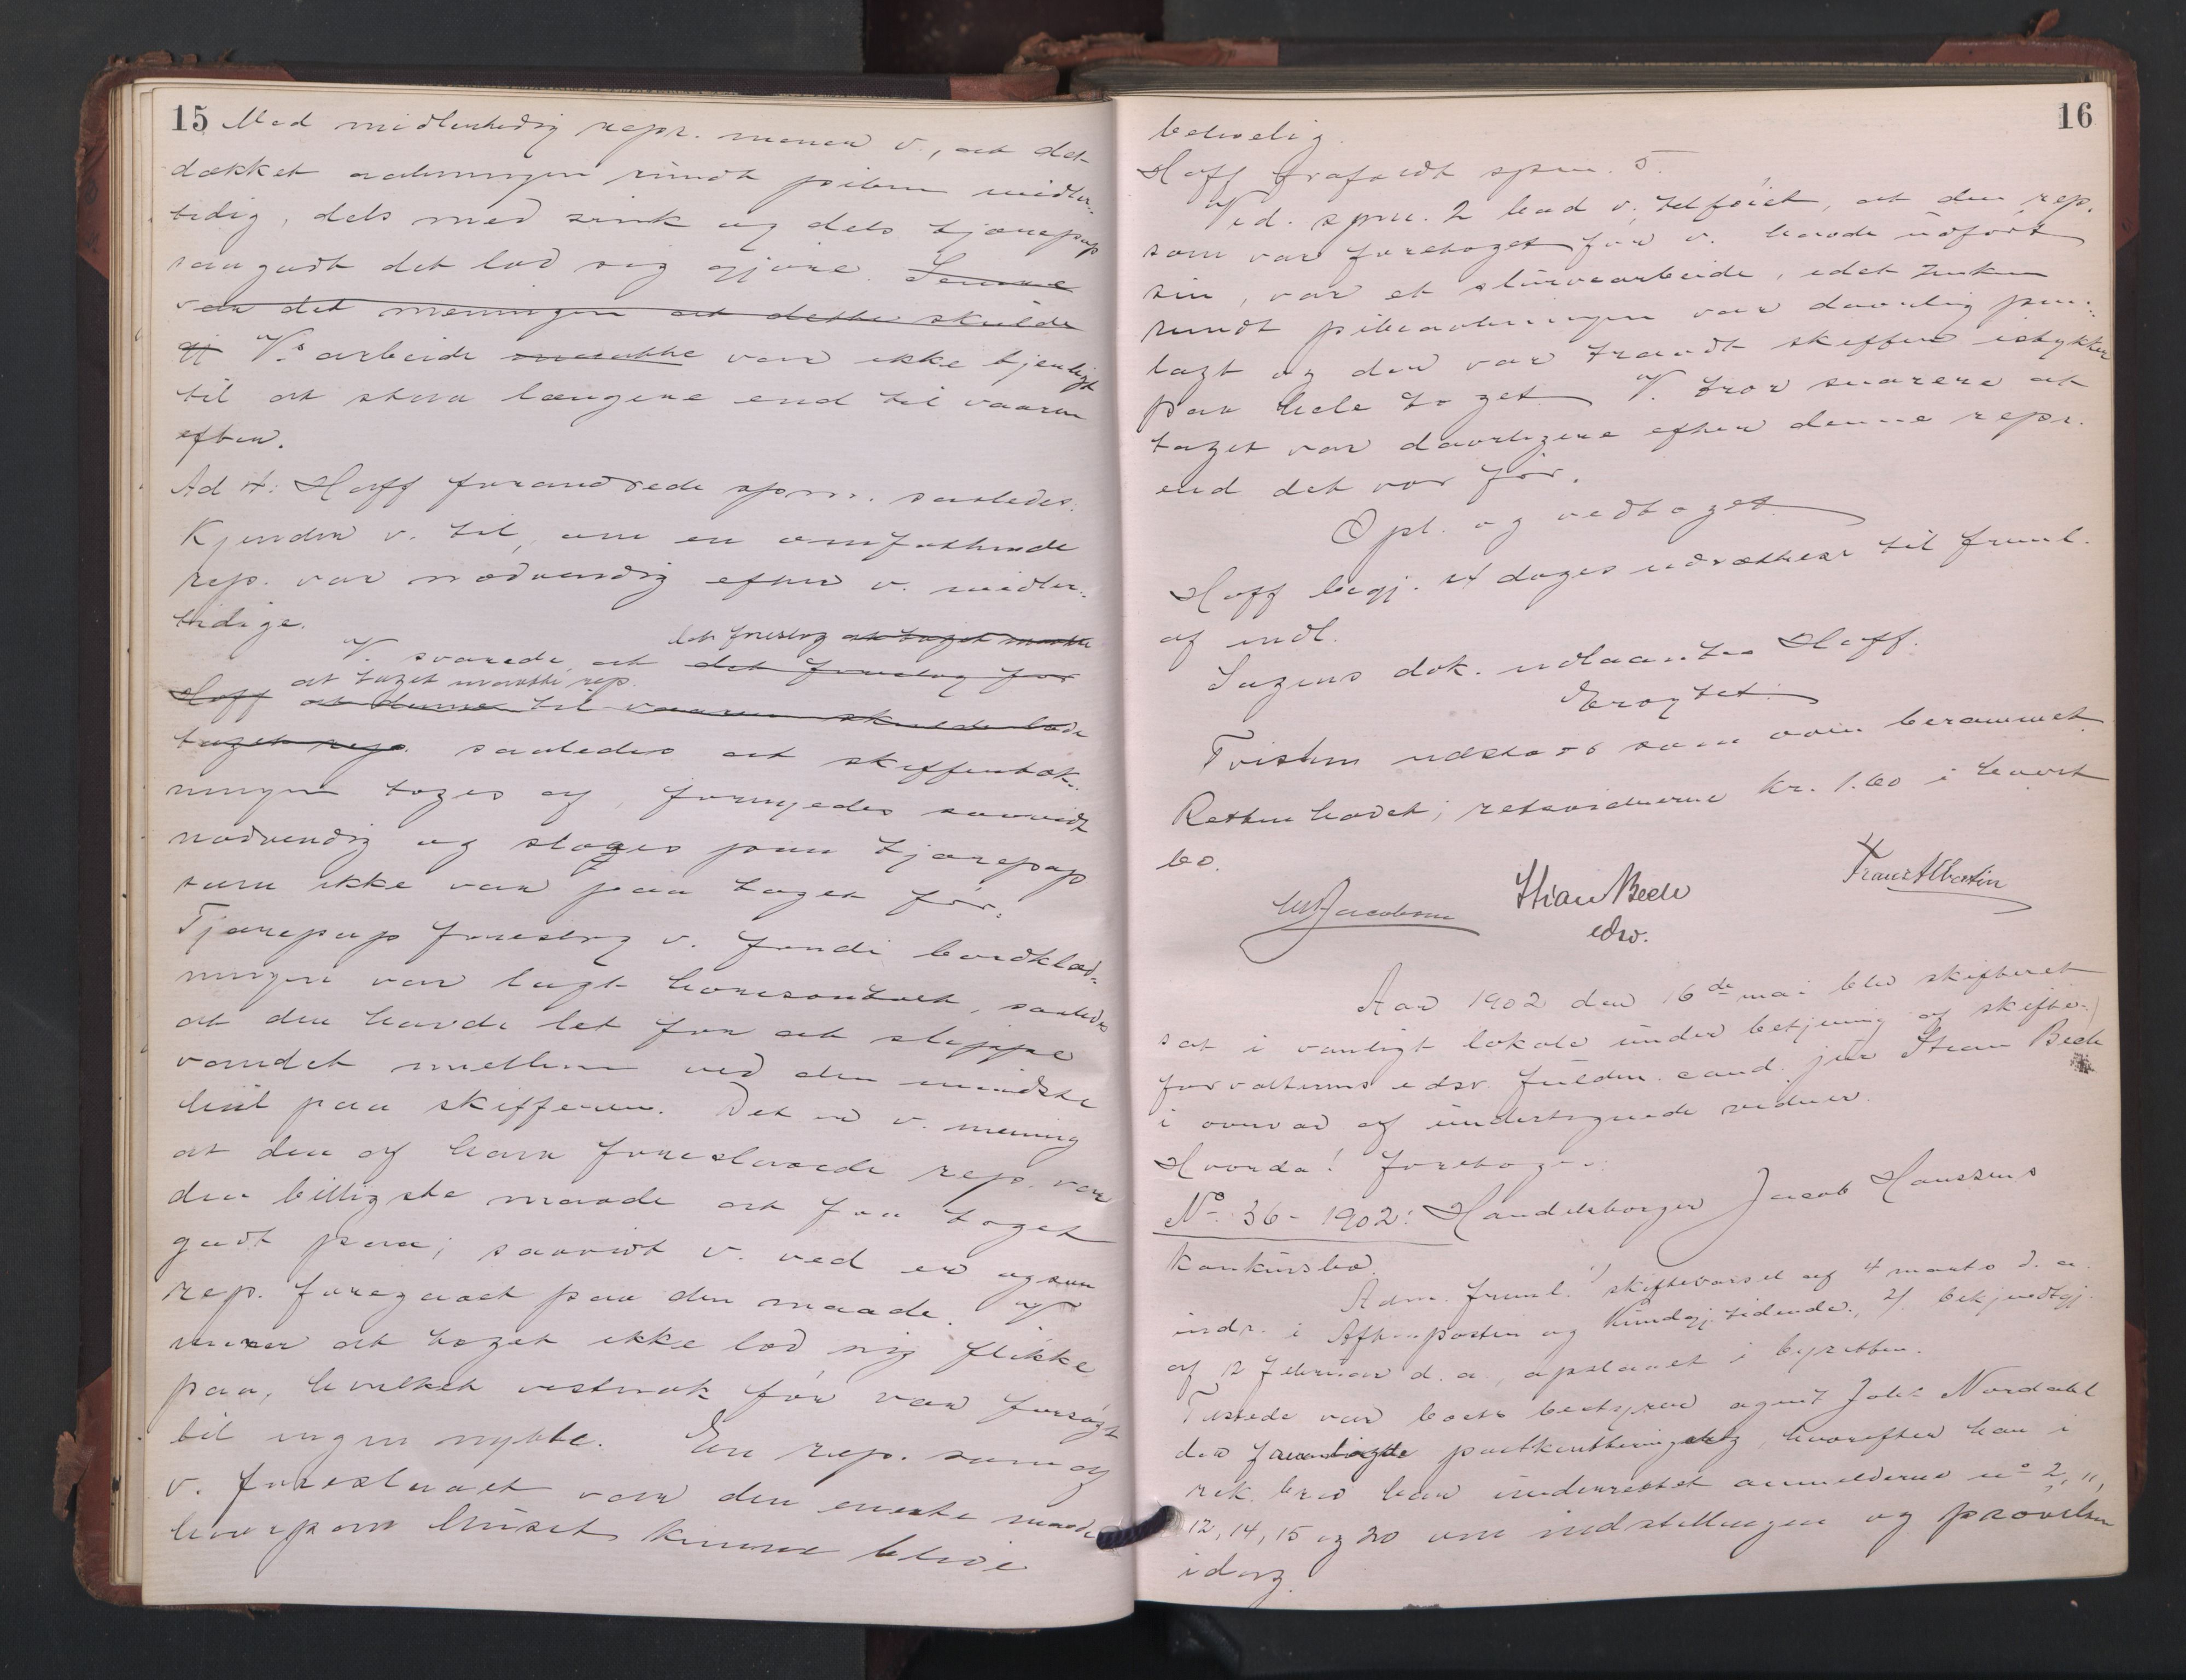 15 Med midlertidig repr. mener v., at det
dækket aabningen rundt piben midler-
tidig, dels med zink og dels tjærepap
saa godt det lod sig gjøre. Senere
var det meningen at dette skulde
V.s arbeide maatte var ikke tjenligt
til at staa længere end til vaaren
efter.
Ad 4: Hoff forandrede spm. saaledes:
Kjender v. til, om en omfattende
rep. var nødvendig efter v. midler-
tidige.
det foreslog at taget maatte
V. svarede, at det foreslog for
at taget maatte rep.
Hoff at denne til vaaren skulde lade
taget rep. saaledes at skiffertæk-
ningen toges af, fornyedes saavidt
nødvendig og sloges paa tjærepap
som ikke var paa taget før.
Tjærepap foreslog v. fordi bordklæd-
ningen var lagt horesontalt, saaledes
at den havde let for at slippe
vandet mellem ved den mindste
hul paa skifferen. Det er v. mening
at den af ham foreslaaede rep. var
den billigste maade at faa taget
godt paa; saavidt v. ved er ogsaa
rep. foregaaet paa den maade. V.
mener at taget ikke lod sig flikke
paa, hvilket vistnok før var forsøgt
til ingen nytte. En rep. som af
v. foreslaaet var den eneste maade
hvorpaa huset kunne blive
16
beboelig.
Hoff frafaldt spm. 5.
Ved spm. 2 bad v. tilføiet, at den rep.
som var foretaget før v. havde udført
sin, var et slurvearbeide, idet zinken
rundt pibeaabningen var daarlig paa-
lagt og der var traadt skiffer istykker
paa hele taget. V. tror snarere at
taget var daarligere efter denne repr.
end det var før.
Opl. og vedtaget.
Hoff begj. 14 dages udsættelse til freml.
af indl.
Sagens dok. udlaantes Hoff.
Eragtet:
Fristen udstaar som oven berammet.
Retten hævet; retsvidnerne kr. 1.60 i hvert
bo.
Stian Bech
edsv.
Franz Albertin
Aar 1902 den 16de mai blev skifteret
sat i vanligt lokale under betjening af skifte-
forvalterens edsv. fuldm. cand. jur Stian Bech
i overvær af undertegnede vidner.
Hvorda! foretoges:
No. 36 - 1902: Handelsborger Jacob Hanssens
konkursbo.
Adm. freml. 1) skiftevarsel af 4 marts d. a.
indr. i Aftenposten og Kundgj. tidende., 2) bekjendtgj.
af 12 februar d. a., opslaaet i byretten.
Tilstede var boets bestyrer agent Joh. Nordahl
der fremlagde postkvittering, hvorefter han i
rek. brev har underrettet anmelderne no 2, 11,
12, 14, 15 og 20 om indstillingen og prøvelsen
idag.